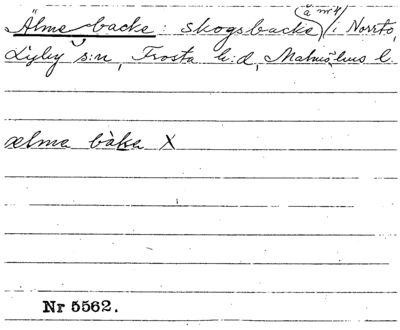 Älme backe: skogsbacke (å nr 4) i Norrto,
Lyby s:n, Frosta h:d, Malmöhus l.
ælme bàka X
Nr 5562.